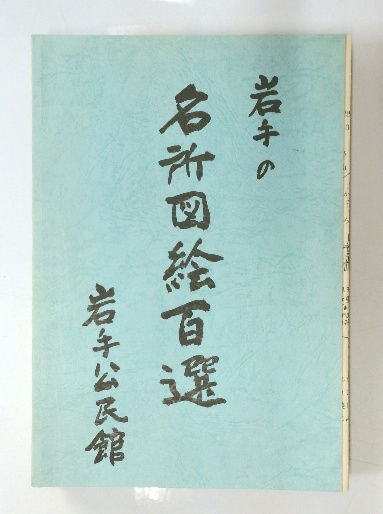 岩手の
名所図絵百選
岩手公民館